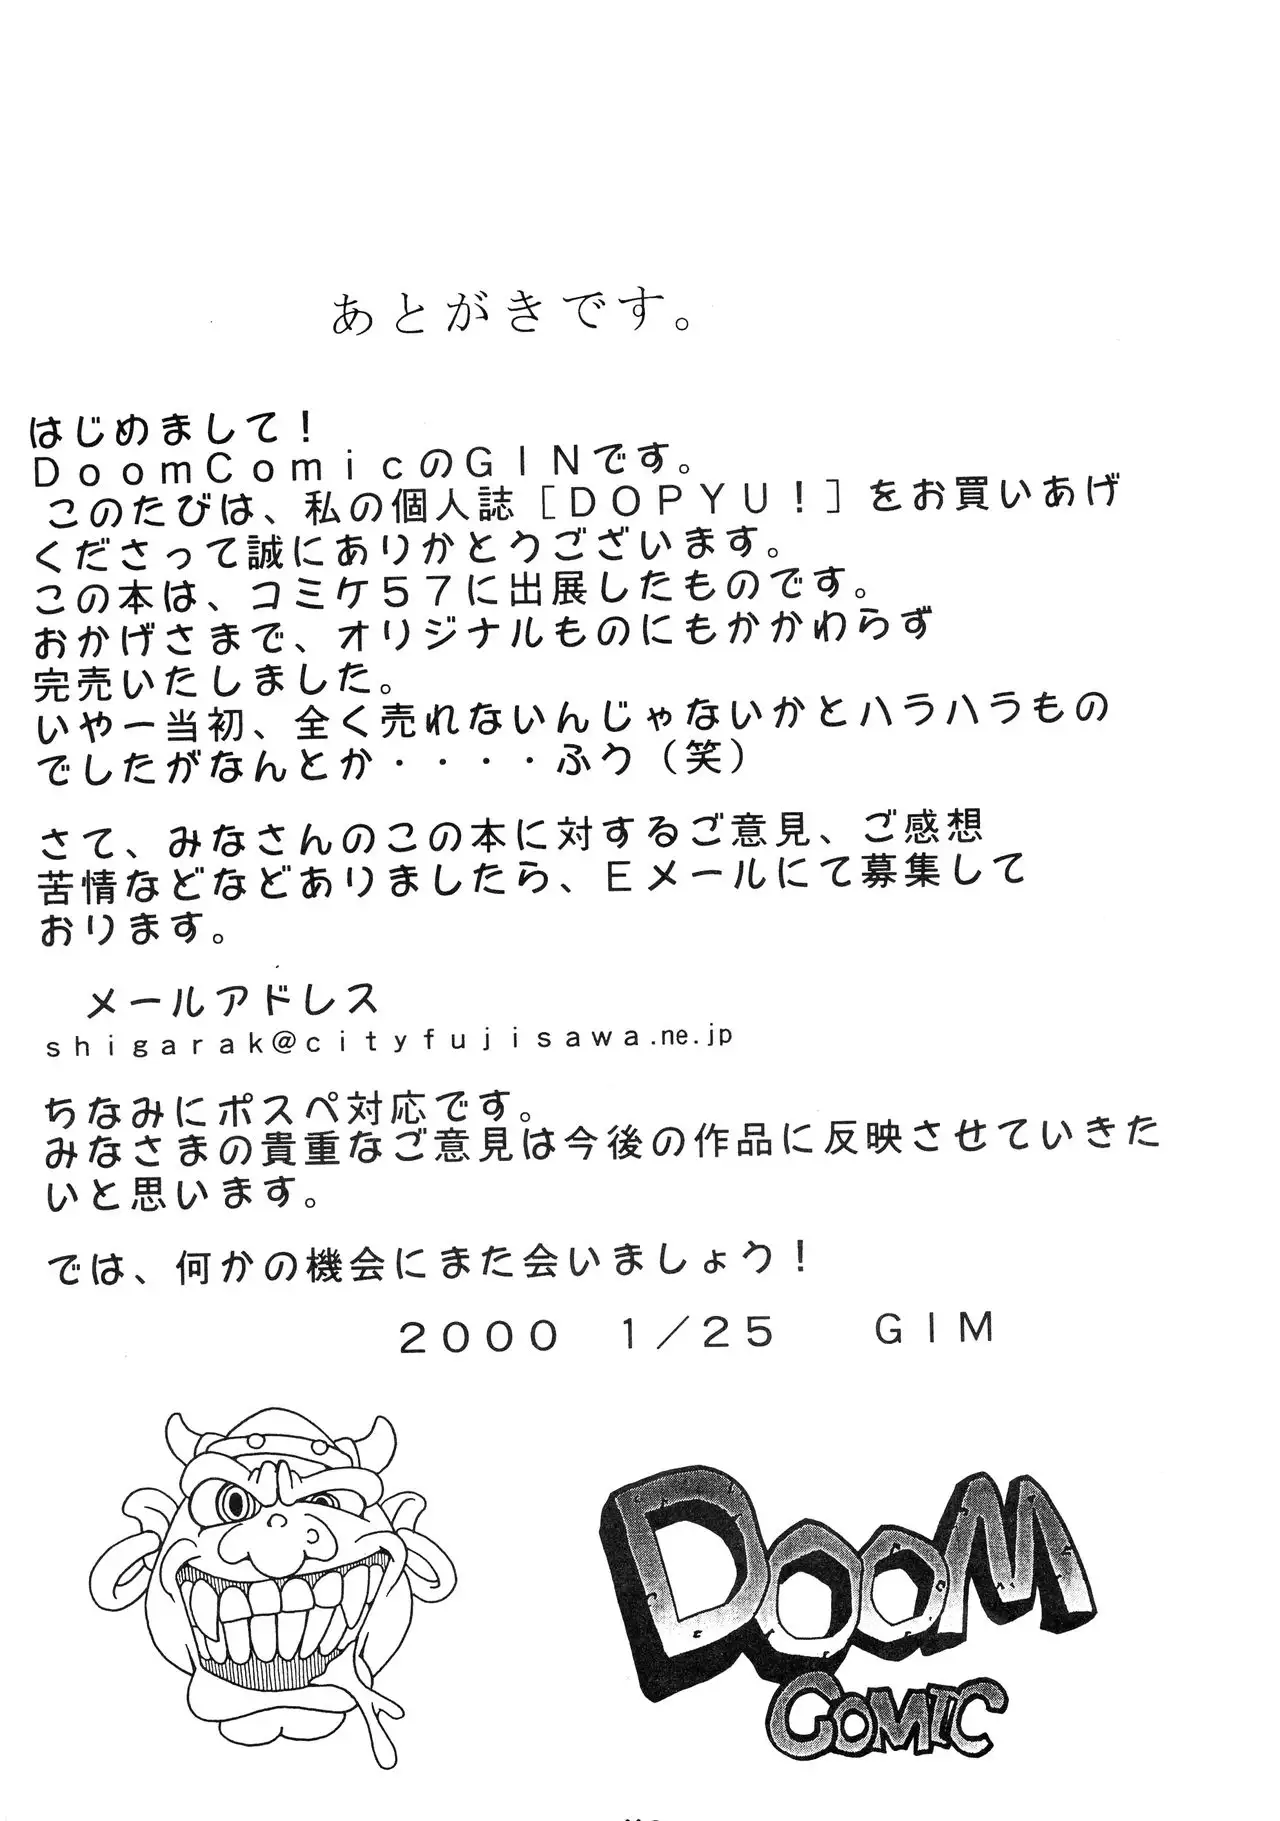 あとがきです。
はじめまして！
ＤｏｏｍＣｏｍｉｃのＧＩＮです。
このたびは、私の個人誌［ＤＯＰＹＵ！］をお買いあげ
くださって誠にありかとうございます。
この本は、コミケ５７に出展したものです。
おかげさまで、オリジナルものにもかかわらず
完売いたしました。
いやー当初、全く売れないんじゃないかとハラハラもの
でしたがなんとか・・・・ふう（笑）
さて、みなさんのこの本に対するご意見、ご感想
苦情などなどありましたら、Ｅメールにて募集して
おります。
メールアドレス
ｓｈｉｇａｒａｋ＠ｃｉｔｙｆｕｊｉｓａｗａ.ne.jp
ちなみにポスペ対応です。
みなさまの貴重なご意見は今後の作品に反映させていきた
いと思います。
では、何かの機会にまた会いましょう！
２０００　１／２５　ＧＩＭ
DOOM
COMIC